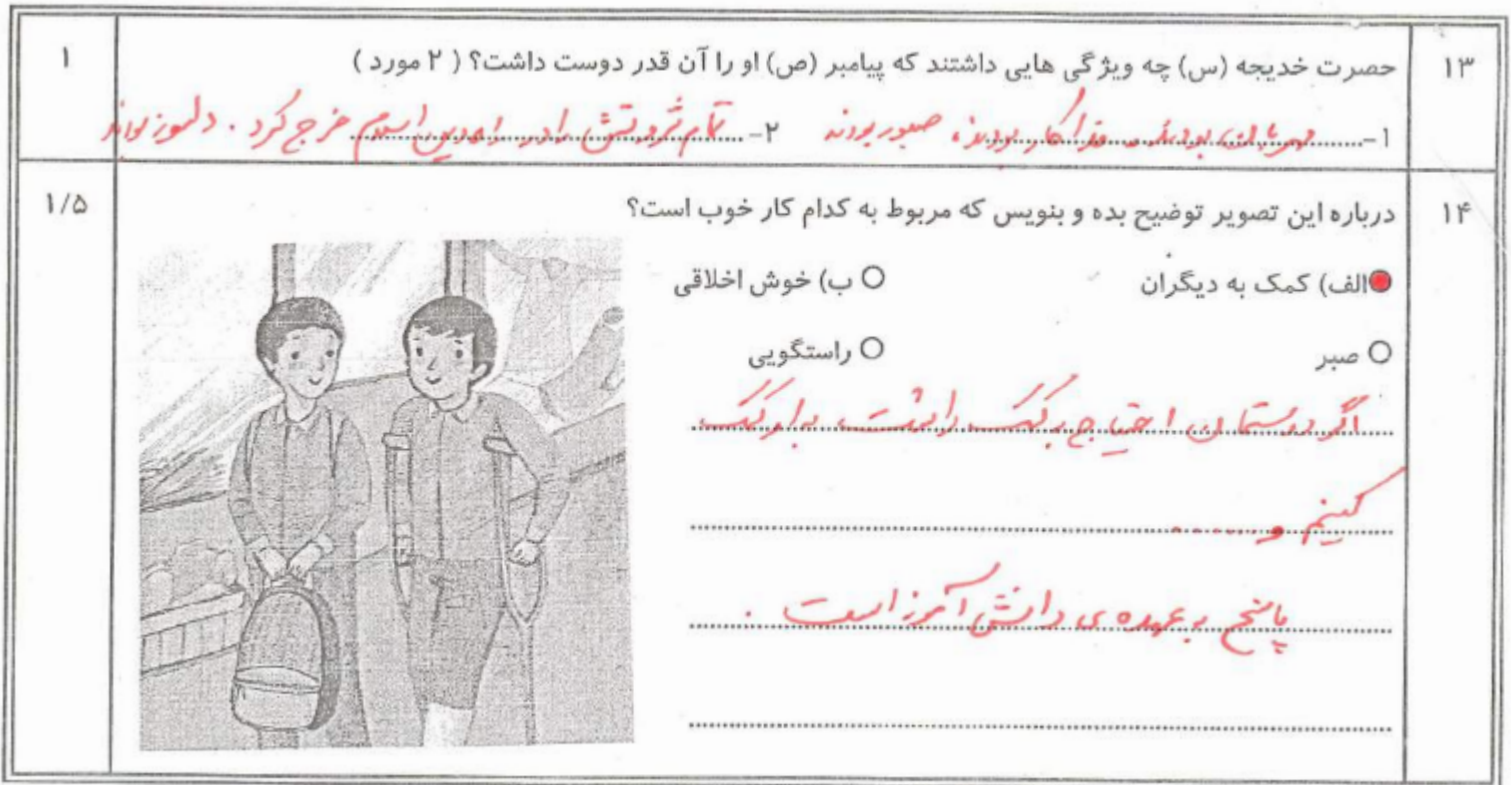 ۱۳ حصرت خدیجه (س) چه ویژگی هایی داشتند که پیامبر (ص) او را آن قدر دوست داشت؟ ( ۲ مورد ) ۱
۱- مهربان بودند. فداکار بودند، صبور بودند ۲- تمام ثروتش را در راه دین اسلام خرج کرد. دلسوز بودند
۱۴ درباره این تصویر توضیح بده و بنویس که مربوط به کدام کار خوب است؟ ۱/۵
الف) کمک به دیگران ب) خوش اخلاقی
صبر راستگویی
اگر دوستمان احتیاج به کمک داشت به او کمک
کنیم و ....
پاسخ به عهده ی دانش آموز است .